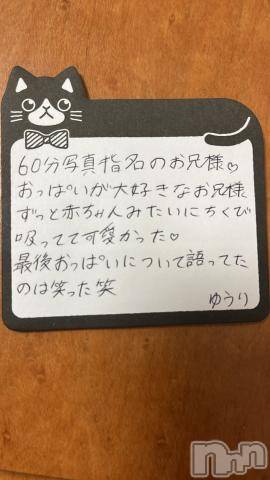 60分写真指名のお兄様♡
おっぱいが大好きなお兄様
ずっと赤ちゃんみたいにちくび
吸ってて可愛かった♡
最後おっぱいについて語ってた
のは笑った笑
ゆうり
Nnn